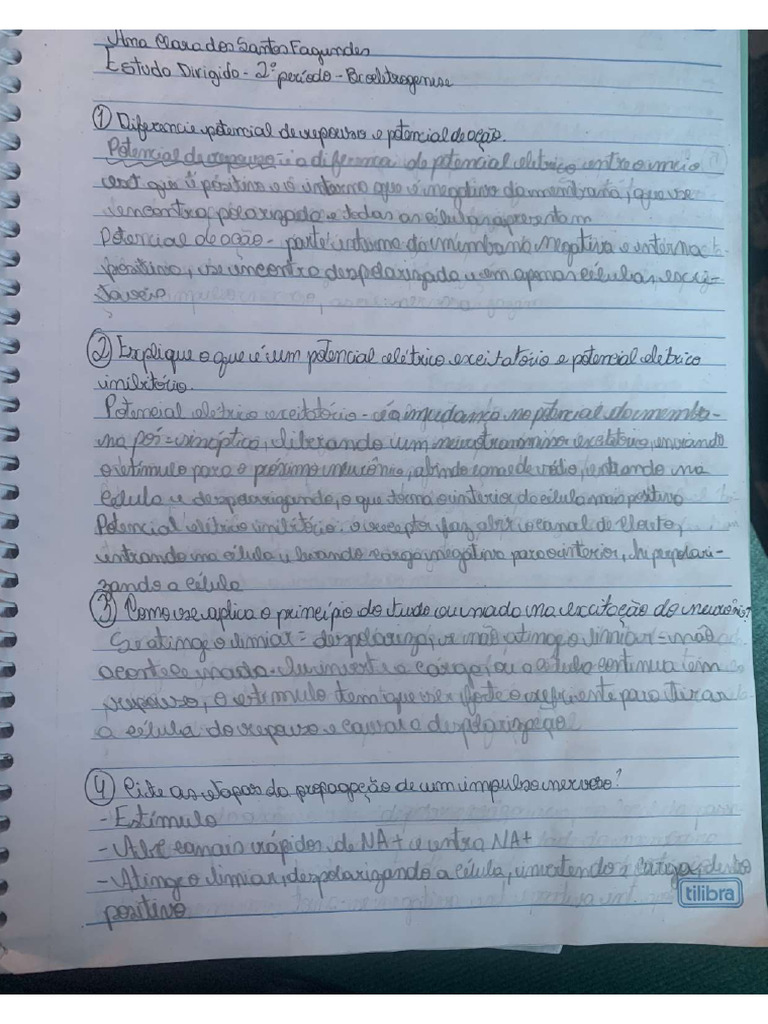 Ana Clara dos Santos Fagundes
Estudo Dirigido - 2º período - Bioeletrogenese
① Diferencie potencial de repouso e potencial de ação.
Potencial de repouso é a diferença de potencial eletrico entre o meio
ext que é positivo e o interno que é negativo da membrana, que se
encontra polarizada e todas as células apresentam
Potencial de ação - parte interna da membrana negativa e interna
positiva, se encontra despolarizada e em apenas células exci-
táveis
② Explique o que é um potencial elétrico excitatório e potencial eletrico
inibitório.
Potencial eletrico excitatório - é a mudança no potencial da memba-
na pós-sinóptica, liberando um neurotransmissor excitatório, enviando
o estímulo para o próximo neurônio, abindo canal de sódio, entrando na
célula e despolarizando, o que torna o interior da célula mais positivo
Potencial elétrico inibitório. o receptor faz abrir o canal de Cloreto,
entrando na célula e levando carga negativa para o interior, hiperpolari-
zando a célula
③ Como se aplica o princípio do tudo ou nada na excitação do neurônio?
Se atinge o limiar = despolariza, se não atinge o limiar = não
acontece nada. Ou inverte a carga, ou a célula continua em
repouso, o estimulo tem que ser forte o suficiente para tirar
a célula do repouso e causar a despolarização
④ Cite as etapas da propagação de um impulso nervoso?
- Estímulo
- Abre canais rápidos de NA+ e entra NA+
- Atinge o limiar, despolarizando a célula, invertendo a carga, dentro
positivo
tilibra